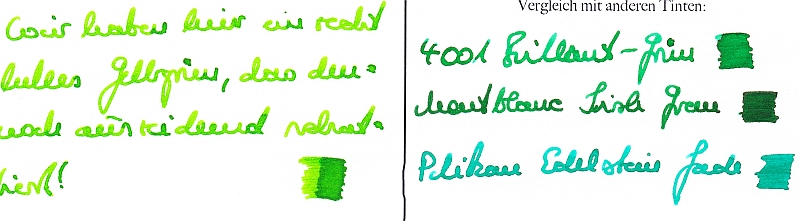 Wir haben hier ein recht
helles Gelbgrün, das den-
noch ausreichend schat-
tiert!
Vergleich mit anderen Tinten:
4001 Brillant-Grün
Montblanc Irish Green
Pelikan Edelstein Jade